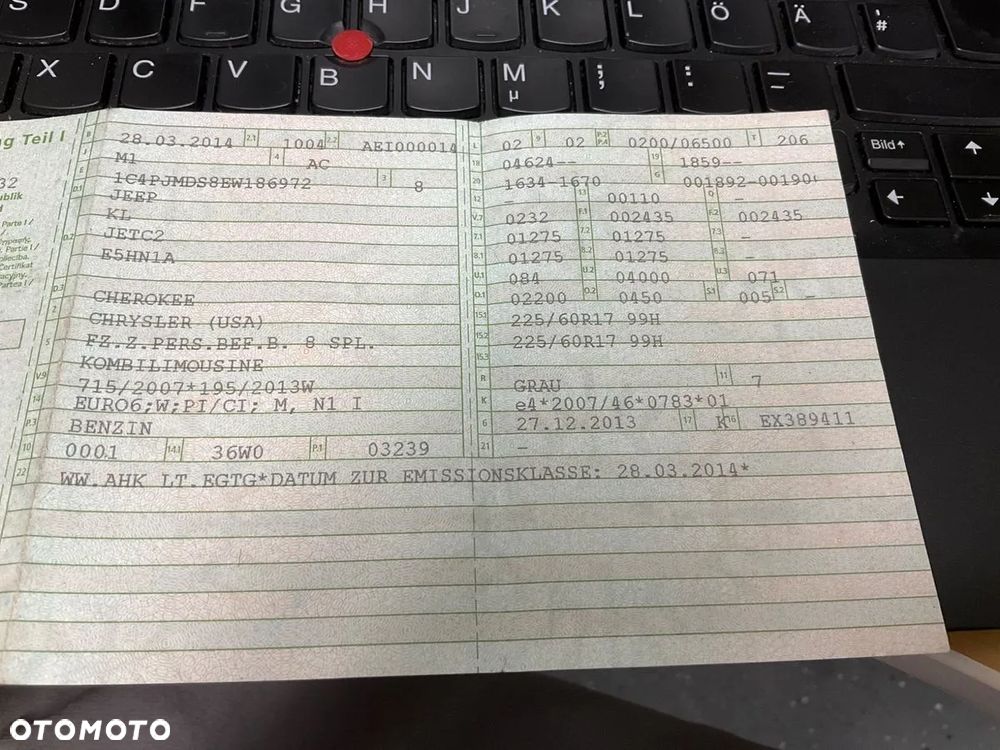 S D F G H J K L Ö Ä #
X C V B N M µ ; : _
Bild ↑
g Teil I
B 28.03.2014 2.1 1004 2.2 AEI000014
J M1 4 AC
E 1C4PJMDS8EW186972 3 8
D.1 JEEP
KL
D.2 JETC2
E5HN1A
D.3 CHEROKEE
2 CHRYSLER (USA)
5 FZ.Z.PERS.BEF.B. 8 SPL.
KOMBILIMOUSINE
V.9 715/2007*195/2013W
14 EURO6;W;PI/CI; M, N1 I
P.3 BENZIN
10 0001 14.1 36W0 P.1 03239
22 WW.AHK LT.EGTG*DATUM ZUR EMISSIONSKLASSE: 28.03.2014*
L 02 9 02 P.2 P.4 0200/06500 T 206
18 04624-- 19 1859--
20 1634-1670 G 001892-00190
12 - 13 00110 Q -
V.7 0232 F.1 002435 F.2 002435
7.1 01275 7.2 01275 7.3 -
8.1 01275 8.2 01275 8.3 -
U.1 084 U.2 04000 U.3 071
O.1 02200 O.2 0450 S.1 005 S.2 -
15.1 225/60R17 99H
15.2 225/60R17 99H
15.3
R GRAU 11 7
K e4*2007/46*0783*01
6 27.12.2013 17 K 16 EX389411
21 -
32
publik
d
Parte I /
Partie I /
Certifikat
acyjny,
Partea I /
OTOMOTO